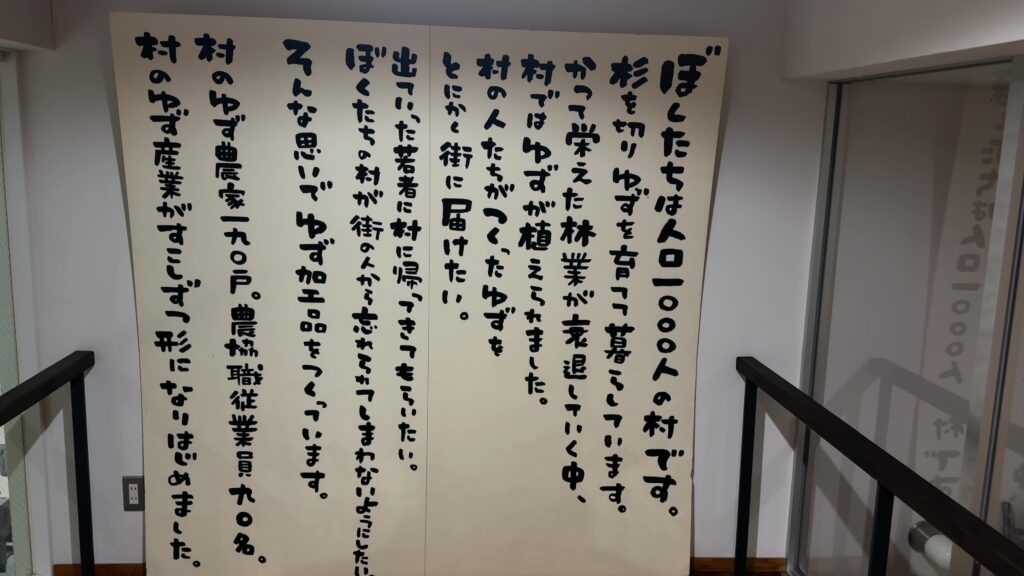 ぼくたちは人口一〇〇〇人の村です。
杉を切りゆずを育って暮らしています。
かつて栄えた林業が衰退していく中、
村ではゆずが植えられました。
村の人たちがつくったゆずを
とにかく街に届けたい。
出ていった若者に村に帰ってきてもらいたい。
ぼくたちの村が街の人から忘れられてしまわないようにしたい。
そんな思いでゆず加工品をつくっています。
村のゆず農家一九〇戸。農協職従業員九〇名。
村のゆず産業がすこしずつ形になりはじめました。